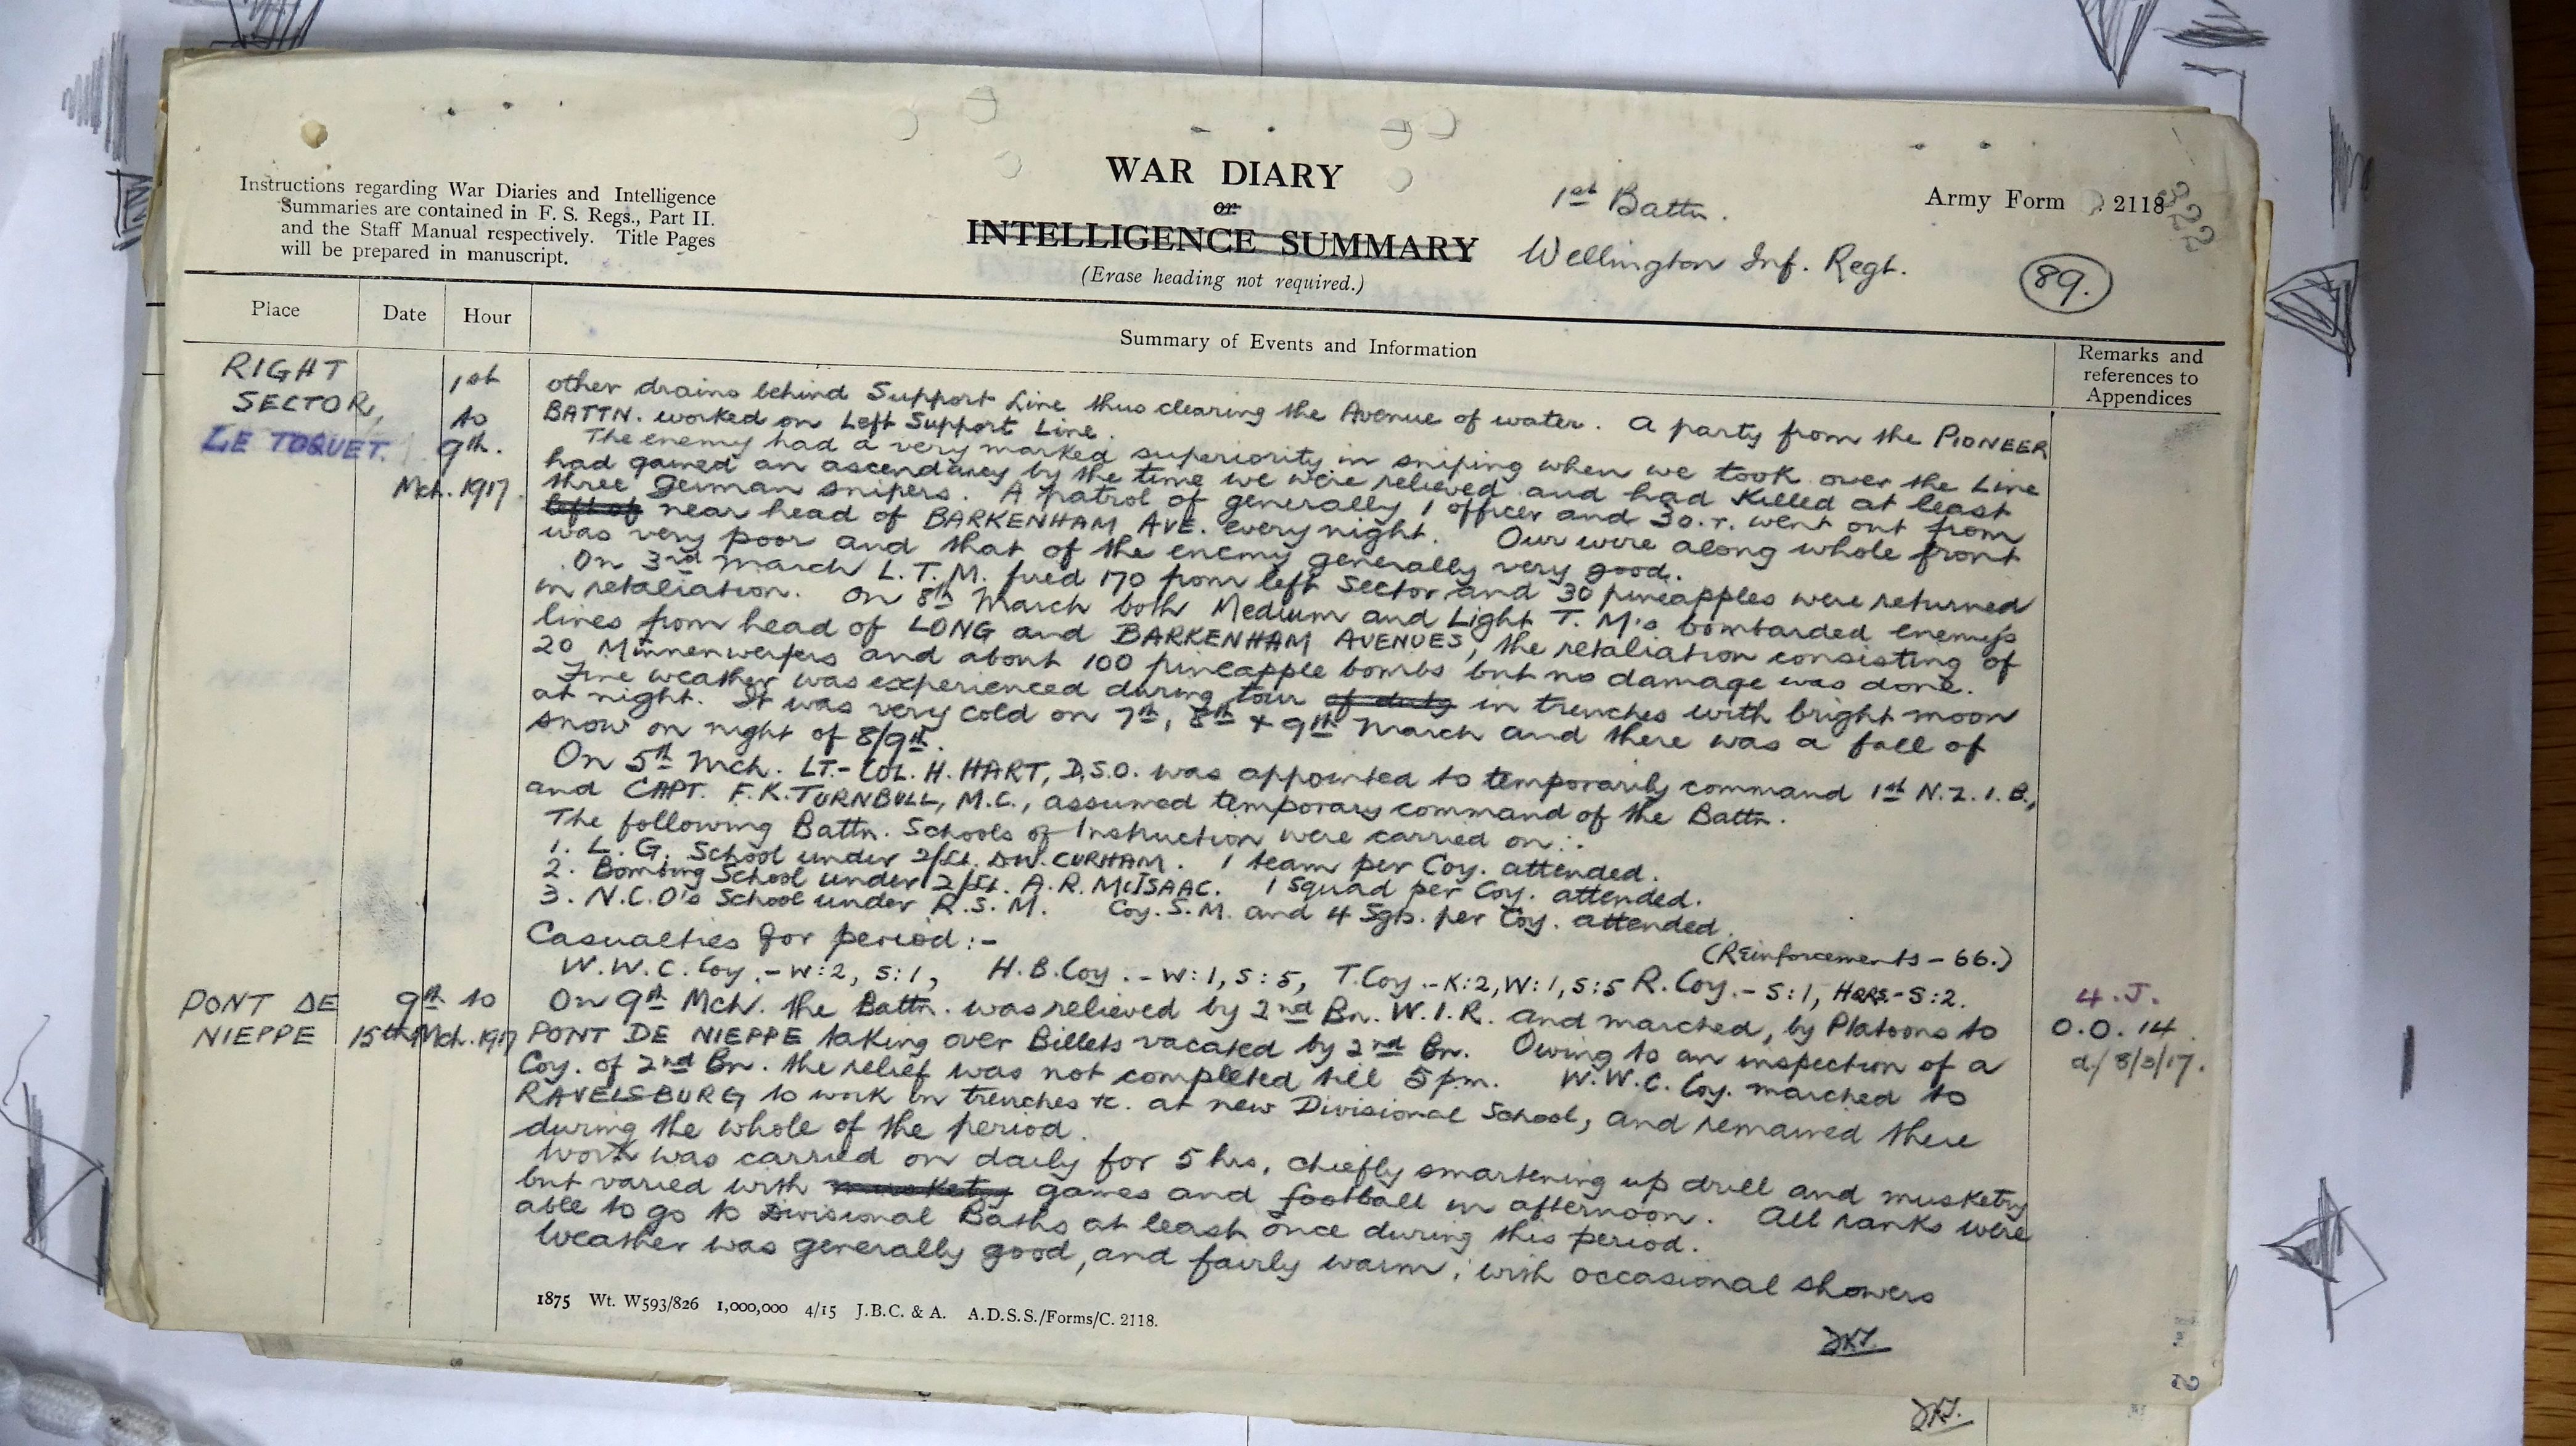 Instructions regarding War Diaries and Intelligence
Summaries are contained in F. S. Regs., Part II.
and the Staff Manual respectively. Title Pages
will be prepared in manuscript.
WAR DIARY
or
INTELLIGENCE SUMMARY
(Erase heading not required.)
1st Battn.
Wellington Inf. Regt.
Army Form 2118
322
89.
Place
Date
Hour
Summary of Events and Information
Remarks and
references to
Appendices
RIGHT
SECTOR,
LE TOQUET.
1st
to
9th.
Mch. 1917.
other drains behind Support Line thus clearing the Avenue of water. A party from the PIONEER
BATTN. worked on Left Support Line.
The enemy had a very marked superiority in sniping when we took over the Line
had gained an ascendancy by the time we were relieved and had killed at least
three German snipers. A patrol of generally 1 officer and 3 o.r. went out from
left of near head of BARKENHAM AVE. every night. Our wire along whole front
was very poor and that of the enemy generally very good.
On 3rd March L.T.M. fired 170 from left sector and 30 pineapples were returned
in retaliation. On 8th March both Medium and Light T.M's bombarded enemy's
lines from head of LONG and BARKENHAM AVENUES, the retaliation consisting of
20 Minnenwerfers and about 100 pineapple bombs but no damage was done.
Fine weather was experienced during tour of duty in trenches with bright moon
at night. It was very cold on 7th, 8th & 9th March and there was a fall of
snow on night of 8/9th.
On 5th Mch. LT.-COL. H. HART, D.S.O. was appointed to temporarily command 1st N.Z.I.B.,
and CAPT. F.K. TURNBULL, M.C., assumed temporary command of the Battn.
The following Battn. Schools of Instruction were carried on:-
1. L.G. School under 2/Lt. D.W. CURHAM. 1 team per Coy. attended.
2. Bombing School under 2/Lt. A.R. McISAAC. 1 Squad per Coy. attended.
3. N.C.O's School under R.S.M. Coy. S.M. and 4 Sgts. per Coy. attended.
Casualties for period:-
(Reinforcements - 66.)
W.W.C. Coy.- W:2, S:1, H.B. Coy.- W:1, S:5, T. Coy.- K:2, W:1, S:5 R. Coy.- S:1, HQRS.- S:2.
PONT DE
NIEPPE
9th to
15th Mch. 1917
On 9th Mch. the Battn. was relieved by 2nd Bn. W.I.R. and marched, by Platoons to
PONT DE NIEPPE taking over Billets vacated by 2nd Bn. Owing to an inspection of a
Coy. of 2nd Bn. the relief was not completed till 5 pm. W.W.C. Coy. marched to
RAVELSBURG to work in trenches &c. at new Divisional School, and remained there
during the whole of the period.
Work was carried on daily for 5 hrs, chiefly smartening up drill and musketry
but varied with musketry games and football in afternoon. All ranks were
able to go to Divisional Baths at least once during this period.
Weather was generally good, and fairly warm, with occasional showers
4.J.
O.O. 14
d/8/3/17.
1875 Wt. W593/826 1,000,000 4/15 J.B.C. & A. A.D.S.S./Forms/C. 2118.